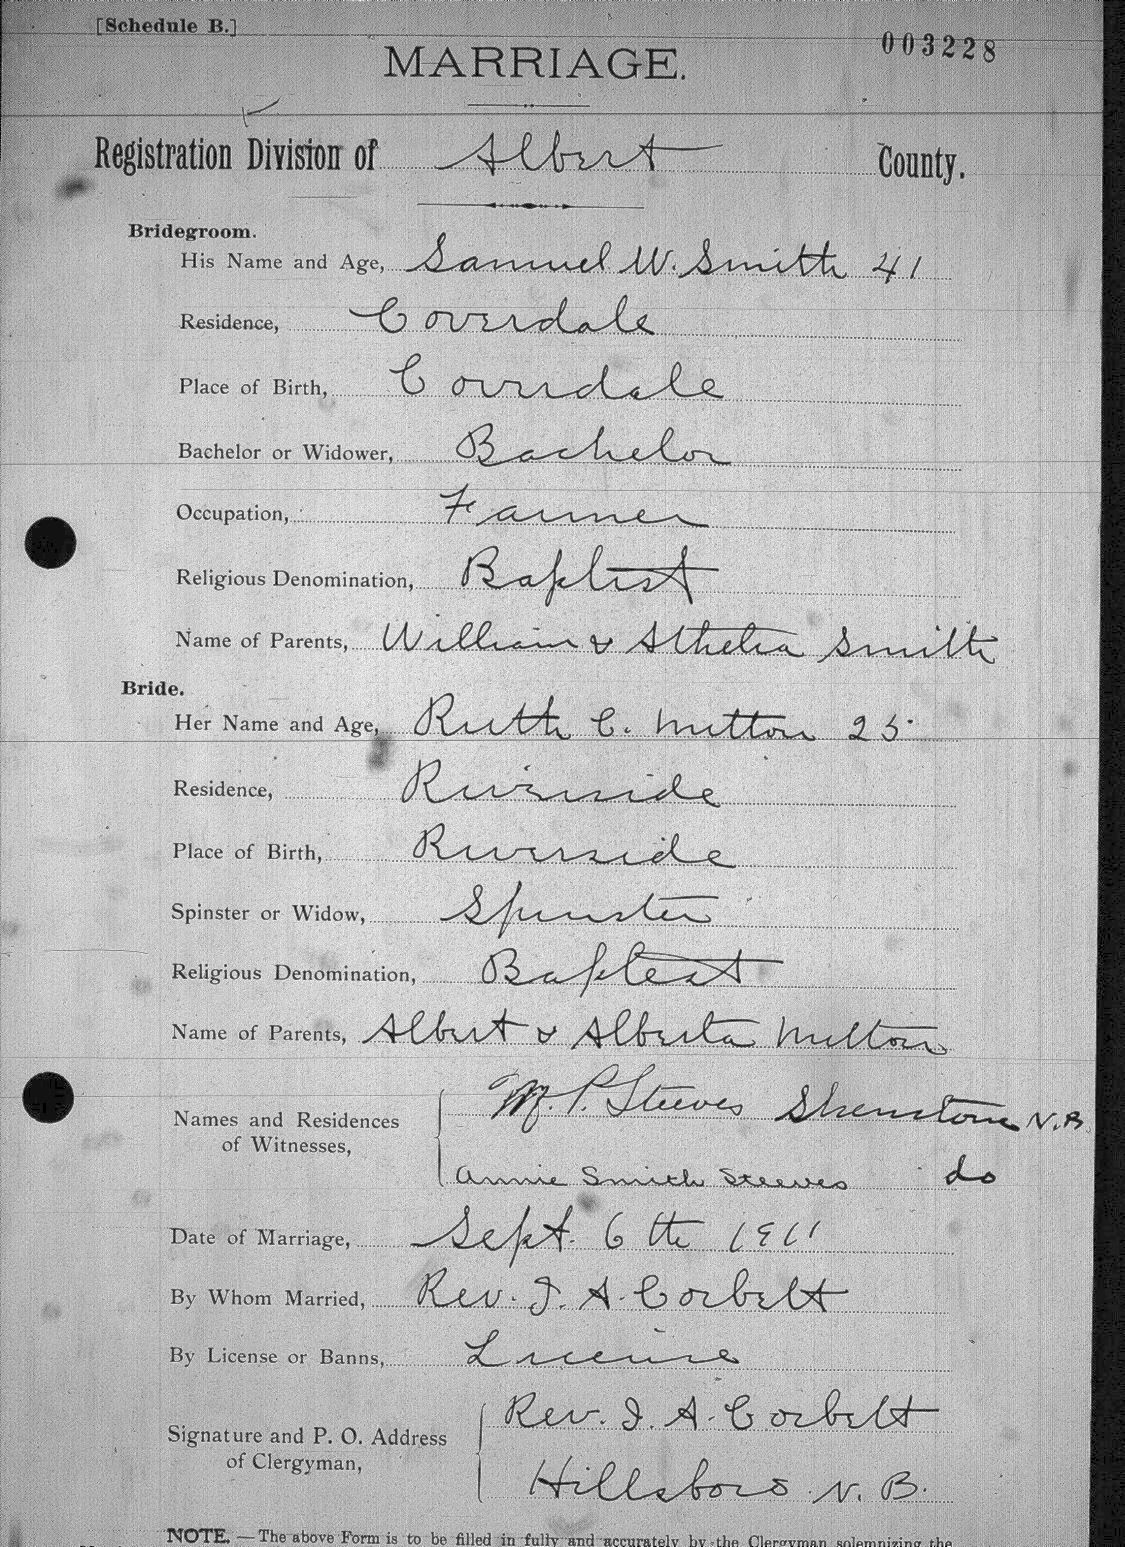 [Schedule B.]
003228
MARRIAGE.
Registration Division of Albert County.
Bridegroom.
His Name and Age, Samuel W. Smith 41
Residence, Coverdale
Place of Birth, Coverdale
Bachelor or Widower, Bachelor
Occupation, Farmer
Religious Denomination, Baptist
Name of Parents, William & Athelia Smith
Bride.
Her Name and Age, Ruth C. Mitton 25
Residence, Riverside
Place of Birth, Riverside
Spinster or Widow, Spinster
Religious Denomination, Baptist
Name of Parents, Albert & Alberta Mitton
Names and Residences M. P. Steeves Shenstone N.B.
of Witnesses, Annie Smith Steeves do
Date of Marriage, Sept. 6th 1911
By Whom Married, Rev. I. A. Corbett
By License or Banns, License
Signature and P. O. Address Rev. I. A. Corbett
of Clergyman, Hillsboro N. B.
NOTE.—The above Form is to be filled in fully and accurately by the Clergyman solemnizing the